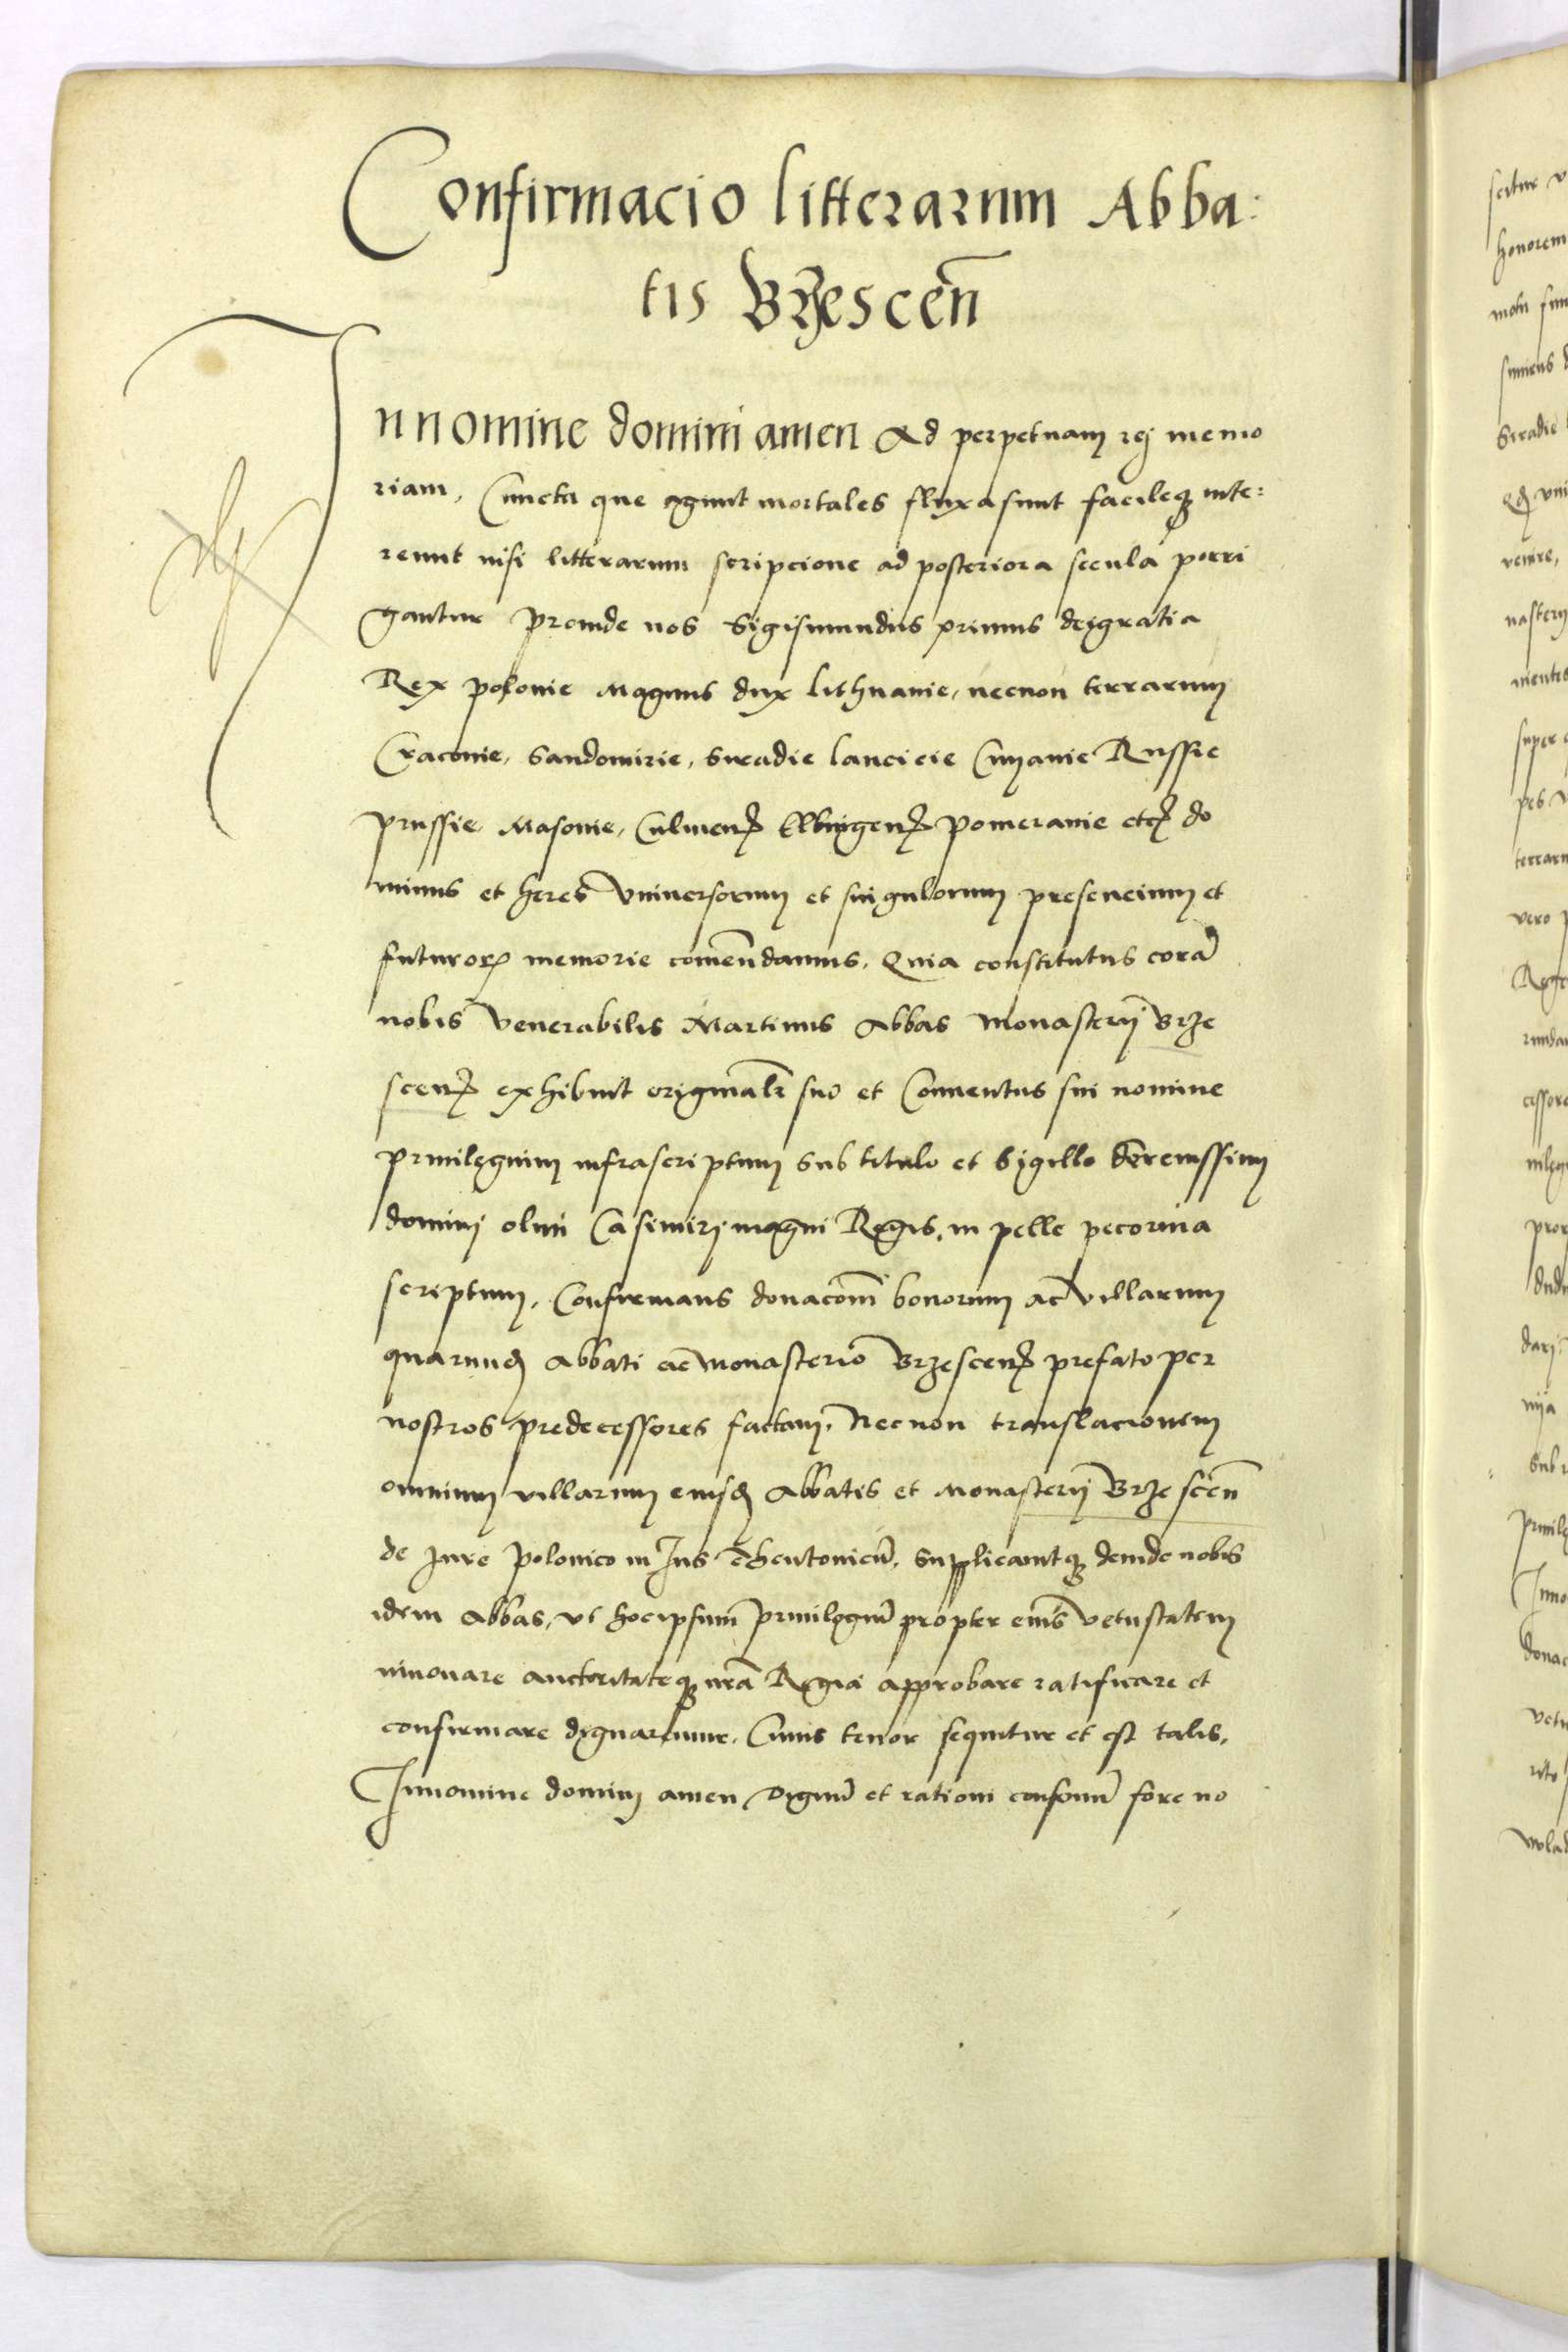 Confirmacio litterarum Abba:
tis Brzescen̄
In nomine domini amen Ad perpetuam rej memo
riam, Cuncta que agunt mortales fluxa sunt facileqꝫ inte:
reunt nisi litterarum scripcione ad posteriora secula porri
gantur Proinde nos Sigismundus primus deigratia
Rex polonie Magnus dux Lithuanie, necnon terrarum
Cracouie, Sandomirie, Siradie lancicie Cuyauie Russie
prussie Masouie, Culmenß Elbingenß Pomeranie etcß do
minus et heres Vniuersorum et singulorum presencium et
futuroꝝ memorie comēndamus, Quia constitutus corā
nobis Venerabilis Martinus Abbas Monasterij Brze
scenß exhibuit originalr suo et Conuentus sui nomine
priuilegium infrascriptum sub titulo et Sigillo Serenissimj
dominj olim Casimirj magni Regis, in pelle pecorina
scriptum, Confirmans donacōm bonorum ac villarum
quarundā Abbati ac monasterio Brzescenß prefato per
nostros predecessores factam, Necnon translacionem
omnium villarum eiusdē Abbatis et Monasterij Brzescen̄
de Jure Polonico in Jus Theutonicū, Supplicauitqꝫ deinde nobis
idem Abbas, vt hocipsum Priuilegiū propter eius vetustatem
innouare auctoritateqꝫ nrā Regia approbare ratificare et
confirmare dignaremur, Cuius tenor sequitur et est talis,
Innomine dominj amen Dignū et rationi consonū fore no
scitur v
honorem